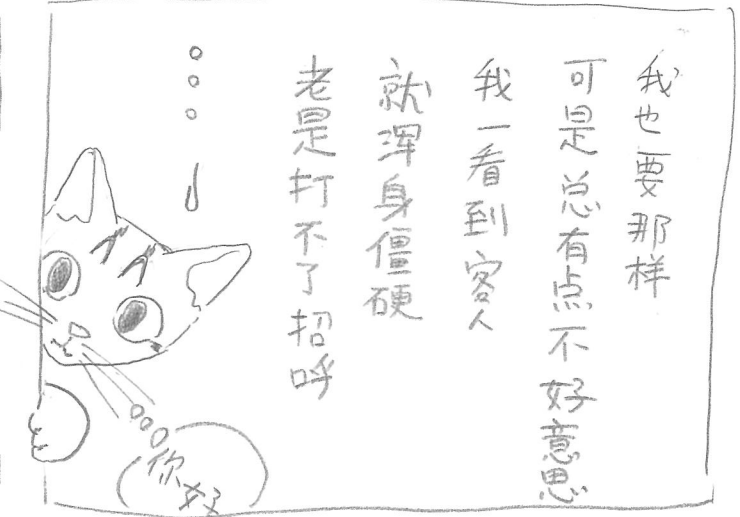 我也要那样
可是总有点不好意思
我一看到客人
就浑身僵硬
老是打不了招呼
你好